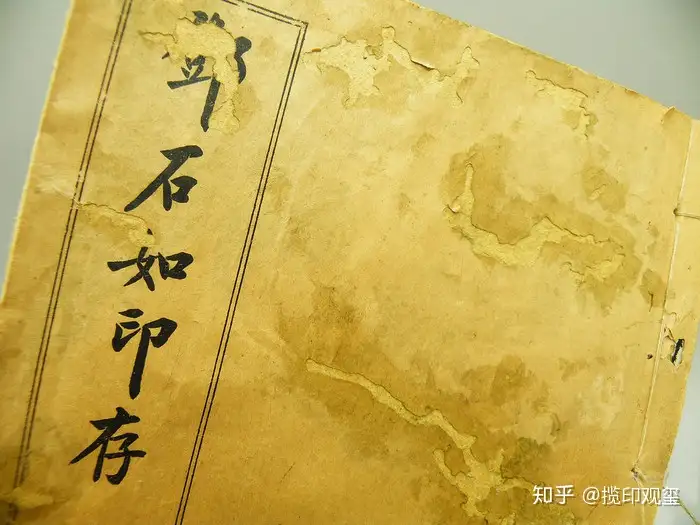 鄧石如印存
知乎 @揽印观玺